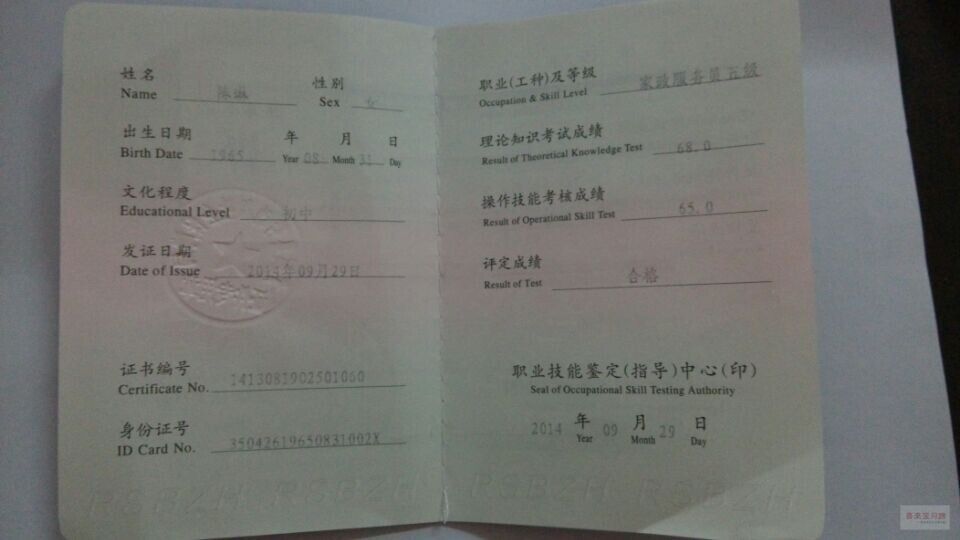 姓名 陈淑 性别 女
Name Sex
出生日期 年 月 日
Birth Date 1965 Year 08 Month 31 Day
文化程度
Educational Level 初中
发证日期
Date of Issue 2014年09月29日
证书编号
Certificate No. 1413081902501060
身份证号
ID Card No. 35042619650831002X
职业(工种)及等级 家政服务员五级
Occupation & Skill Level
理论知识考试成绩
Result of Theoretical Knowledge Test 68.0
操作技能考核成绩
Result of Operational Skill Test 65.0
评定成绩
Result of Test 合格
职业技能鉴定(指导)中心(印)
Seal of Occupational Skill Testing Authority
2014 年 09 月 29 日
Year Month Day
RSBZH RSBZH RSBZH RSBZH